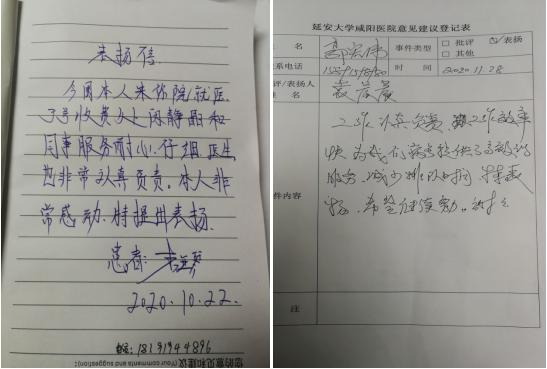 表扬信
今因本人来你院就医,
3号收费处上闵静晶和
同事服务耐心.仔细.医生
也非常认真负责。本人非
常感动.特提出表扬.
患者:
2020.10.22.
电话: 18191944896
您的意见和建议(Your comments and suggestion):
延安大学咸阳医院意见建议登记表
名
事件类型
□ 批评 ☑/表扬
□ 其他
系电话
时间
2020.11.28
评/表扬人
姓名
工作认真负责,
工作效率
快 为我们
提供了高效的
服务.减少排队时间 特表
扬. 希望继续
件内容
注